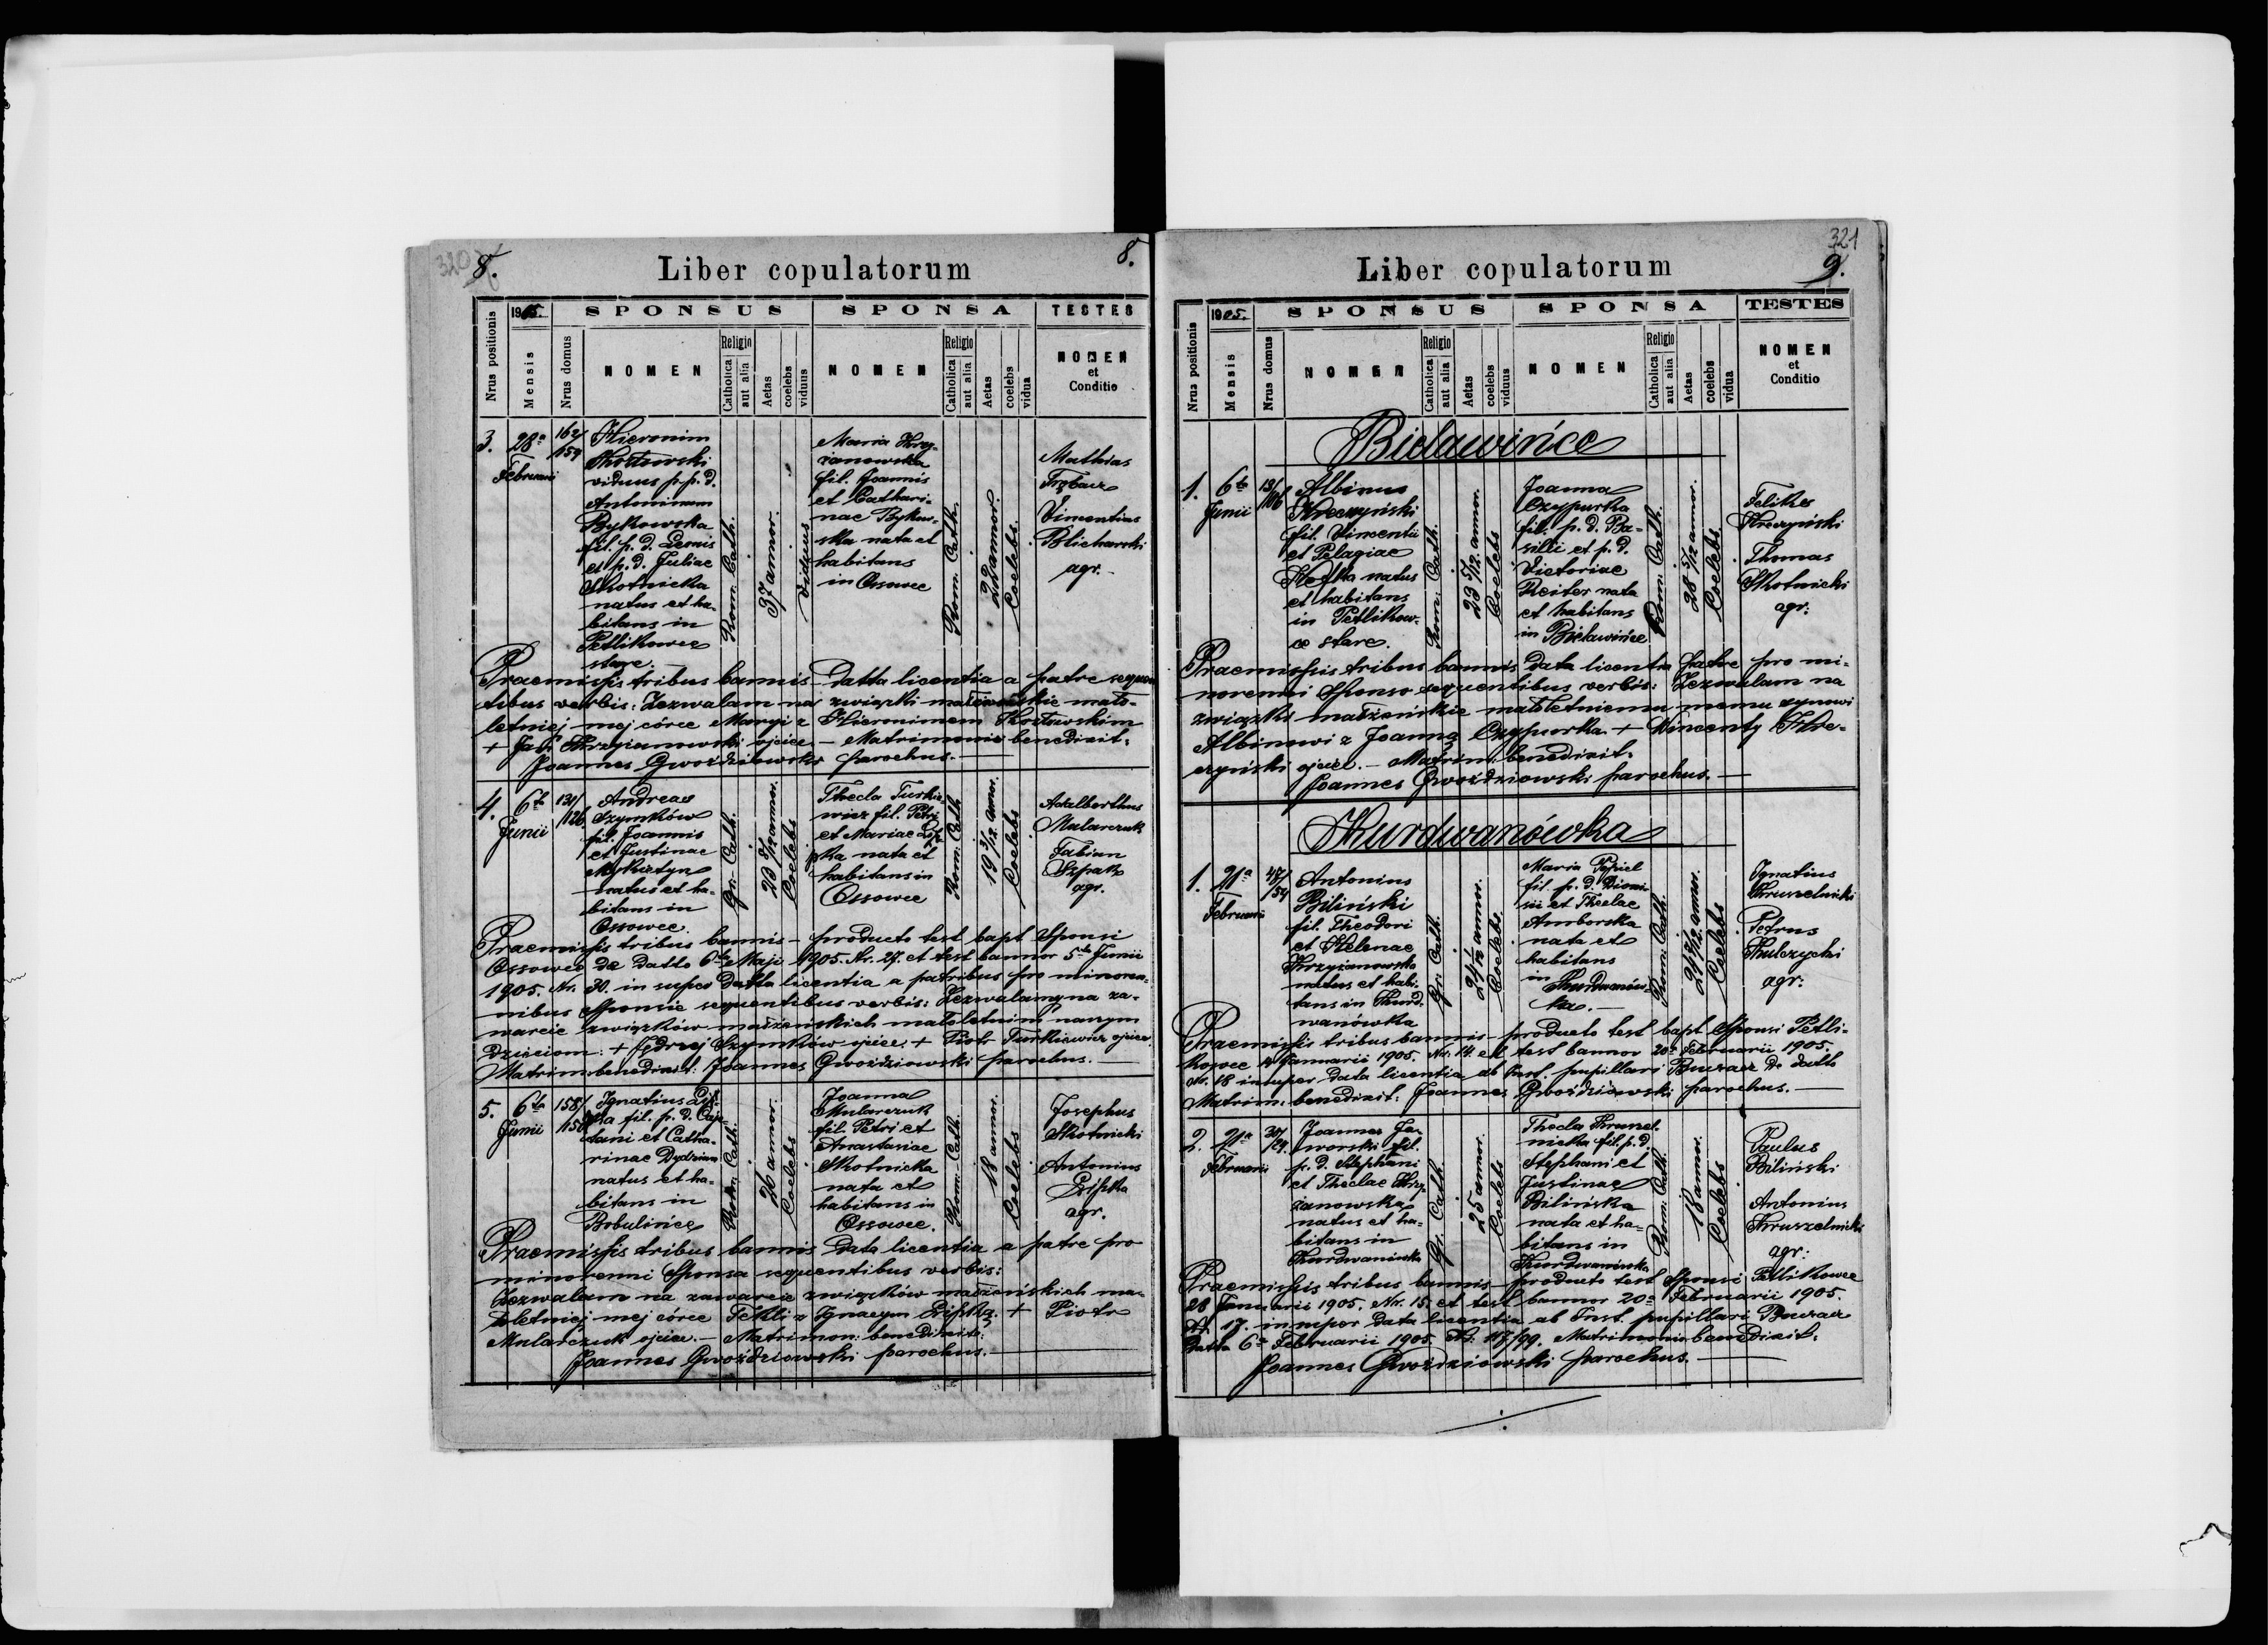 320
8.
8.
Liber copulatorum
Nrus positionis
1905.
Mensis
Nrus domus
SPONSUS
NOMEN
Religio
Catholica
aut alia
Aetas
coelebs
viduus
SPONSA
NOMEN
Religio
Catholica
aut alia
Aetas
coelebs
vidua
TESTES
NOMEN
et
Conditio
3.
28a
Februarii
162/
159
Hieronim
viduus p. p. d.
Antoninam
Bykowska
fil. p. d.
et p. d. Juliae
Skotnicka
natus et ha-
bitans in
Petlikowce
stare.
Rom: Cath.
37 annor.
viduus
Maria Krzy-
żanowska
fil. Joannis
et Cathari-
nae Bykow-
ska nata et
habitans
in Ossowce
Rom. Cath.
22 annor.
Coelebs.
Mathias
Trębacz
Vincentius
Blicharski
agr.
Praemissis tribus bannis - Datta licentia a patre sequen
tibus verbis: Zezwalam na związki małżeńskie mało-
letniej mej córce Maryi z Hieronimem
+ Jan Krzyżanowski ojciec. - Matrimonio benedixit.
Joannes Gwoździowski parochus.
4.
6ta
Junii
131/
126
Andreas
Szymków
fil. Joannis
et Justinae
natus et ha-
bitans in
Ossowce.
Gr. Cath.
23 annor.
Coelebs
Thecla Turkie-
wicz fil. Petri
et Mariae Lip
pka nata et
habitans in
Ossowce
Rom: Cath
19 3/12 annor.
Coelebs
Adalberthus
Mularczuk
Fabian
Szpak
agr.
Praemissis tribus bannis - producto test bapt Sponsi
Ossowce de Datto 6ta Maji 1905. Nr. 27. et test bannor 5ta Junii
1905. Nr. 30. in super Datta licentia a patribus pro minoren-
nibus Sponsis sequentibus verbis: Zezwalamy na za-
warcie związków małżeńskich małoletnim naszym
dzieciom: + Jędrzej Szymków ojciec. + Piotr Turkiewicz ojciec.
Matrim: benedixit: Joannes Gwoździowski parochus.
5.
6ta
Junii
158/
Ignatius Lip-
pka fil. p. d. Caje-
tani et Catha-
rinae
natus et ha-
bitans in
Bobulińce
Rom. Cath.
26 annor.
Coelebs
Joanna
Mularczuk
fil. Petri et
Anastasiae
Skotnicka
nata et
habitans in
Ossowce.
Rom. Cath.
18 annor.
Coelebs
Josephus
Skotnicki
Antonius
Lipka
agr.
Praemissis tribus bannis Data licentia a patre pro
minorenni Sponsa sequentibus verbis:
Zezwalam na zawarcie związków małżeńskich ma-
łoletniej mej córce Tekli z Ignacym Lipką. + Piotr
Mularczuk ojciec. - Matrimon: benedixit:
Joannes Gwoździowski parochus.
321
9.
Liber copulatorum
Nrus positionis
1905.
Mensis
Nrus domus
SPONSUS
NOMEN
Religio
Catholica
aut alia
Aetas
coelebs
viduus
SPONSA
NOMEN
Religio
Catholica
aut alia
Aetas
coelebs
vidua
TESTES
NOMEN
et
Conditio
Bielawińce
1.
6ta
Junii
Albinus
Kreczyński
fil. Vincentii
et Pelagiae
natus
et habitans
in Petlikow-
ce stare.
Rom: Cath.
23 5/12 annor.
Coelebs
Joanna
Czypurka
fil. p. d. Ba-
silli et p. d.
Victoriae
Reiter nata
et habitans
in Bielawińce
Rom: Cath.
28 5/12 annor.
Coelebs
Felikes
Kreczyński
Thomas
Skotnicki
agr.
Praemissis tribus bannis Data licentia patre pro mi-
norenni Sponso sequentibus verbis: Zezwalam na
związki małżeńskie małoletniemu memu synowi
Albinowi z Joanną Czypurka + Wincenty Kre-
czyński ojciec. - Matrim: benedixit.
Joannes Gwoździowski parochus.
Kurdwanówka
1.
21a
Februarii
47/
54
Antonius
Biliński
fil. Theodori
et Helenae
Krzyżanowska
natus et habi-
tans in Kurd-
wanówka
Gr. Cath.
24 1/12 annor.
Coelebs.
Maria Popiel
fil. p. d. Dioni-
sii et Theclae
Amborska
nata et
habitans
in Kurdwanów-
ka.
Rom: Cath.
annor.
Coelebs
Ignatius
Kruszelnicki
Petrus
Kulczycki
agr:
Praemissis tribus bannis - producto test bapt Sponsi Petli-
kowce Januarii 1905. Nr. 14. et test bannor 20a Februarii 1905.
Nr. 18 insuper Data licentia ab Inst. pupillari Buczacz de datto
Matrim: benedixit: Joannes Gwoździowski parochus.
2.
21a
Februarii
30/
29
Joannes Ja-
worski fil.
p. d. Stephani
et Theclae Krzy-
żanowska
natus et ha-
bitans in
Kurdwanówka
Gr. Cath.
25 annor.
Coelebs
Thecla Kruszel-
nicka fil. p. d.
Stephani et
Justinae
Bilińska
nata et ha-
bitans in
Kurdwanówka
Rom: Cath.
18 annor.
Coelebs
Paulus
Biliński
Antonius
Kruszelnicki
agr:
Praemissis tribus bannis - producto test Sponsi Petlikowce
28 Januarii 1905. Nr. 15. et test bannor 20a Februarii 1905.
N. 17. insuper Data licentia ab Inst. pupillari Buczacz
Datto 6a Februarii 1905. Nr: 117/99. Matrimonio benedixit:
Joannes Gwoździowski parochus.